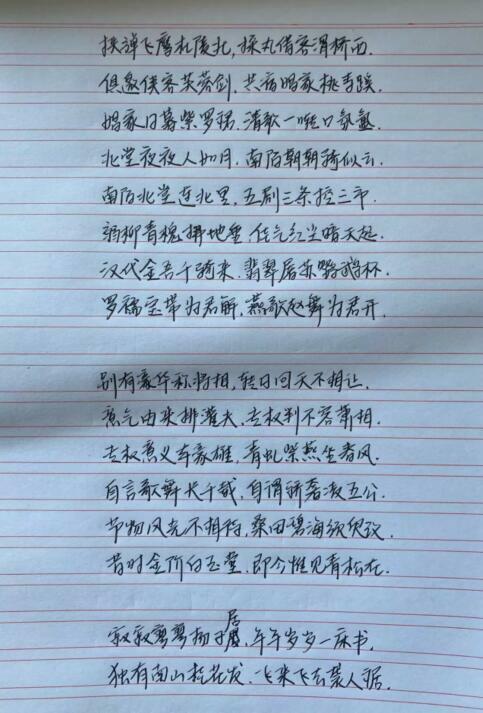 挟弹飞鹰杜陵北，探丸借客渭桥西.
俱邀侠客芙蓉剑，共宿娼家桃李蹊.
娼家日暮紫罗裙，清歌一啭口氛氲.
北堂夜夜人如月，南陌朝朝骑似云.
南陌北堂连北里，五剧三条控三市.
弱柳青槐拂地垂，佳气红尘暗天起.
汉代金吾千骑来，翡翠屠苏鹦鹉杯.
罗襦宝带为君解，燕歌赵舞为君开.
别有豪华称将相，转日回天不相让.
意气由来排灌夫，专权判不容萧相.
专权意义本豪雄，青虬紫燕坐春风.
自言歌舞长千载，自谓骄奢凌五公.
节物风光不相待，桑田碧海须臾改.
昔时金阶白玉堂，即今惟见青松在.
寂寂寥寥扬子居，年年岁岁一床书.
独有南山桂花发，飞来飞去袭人裾.